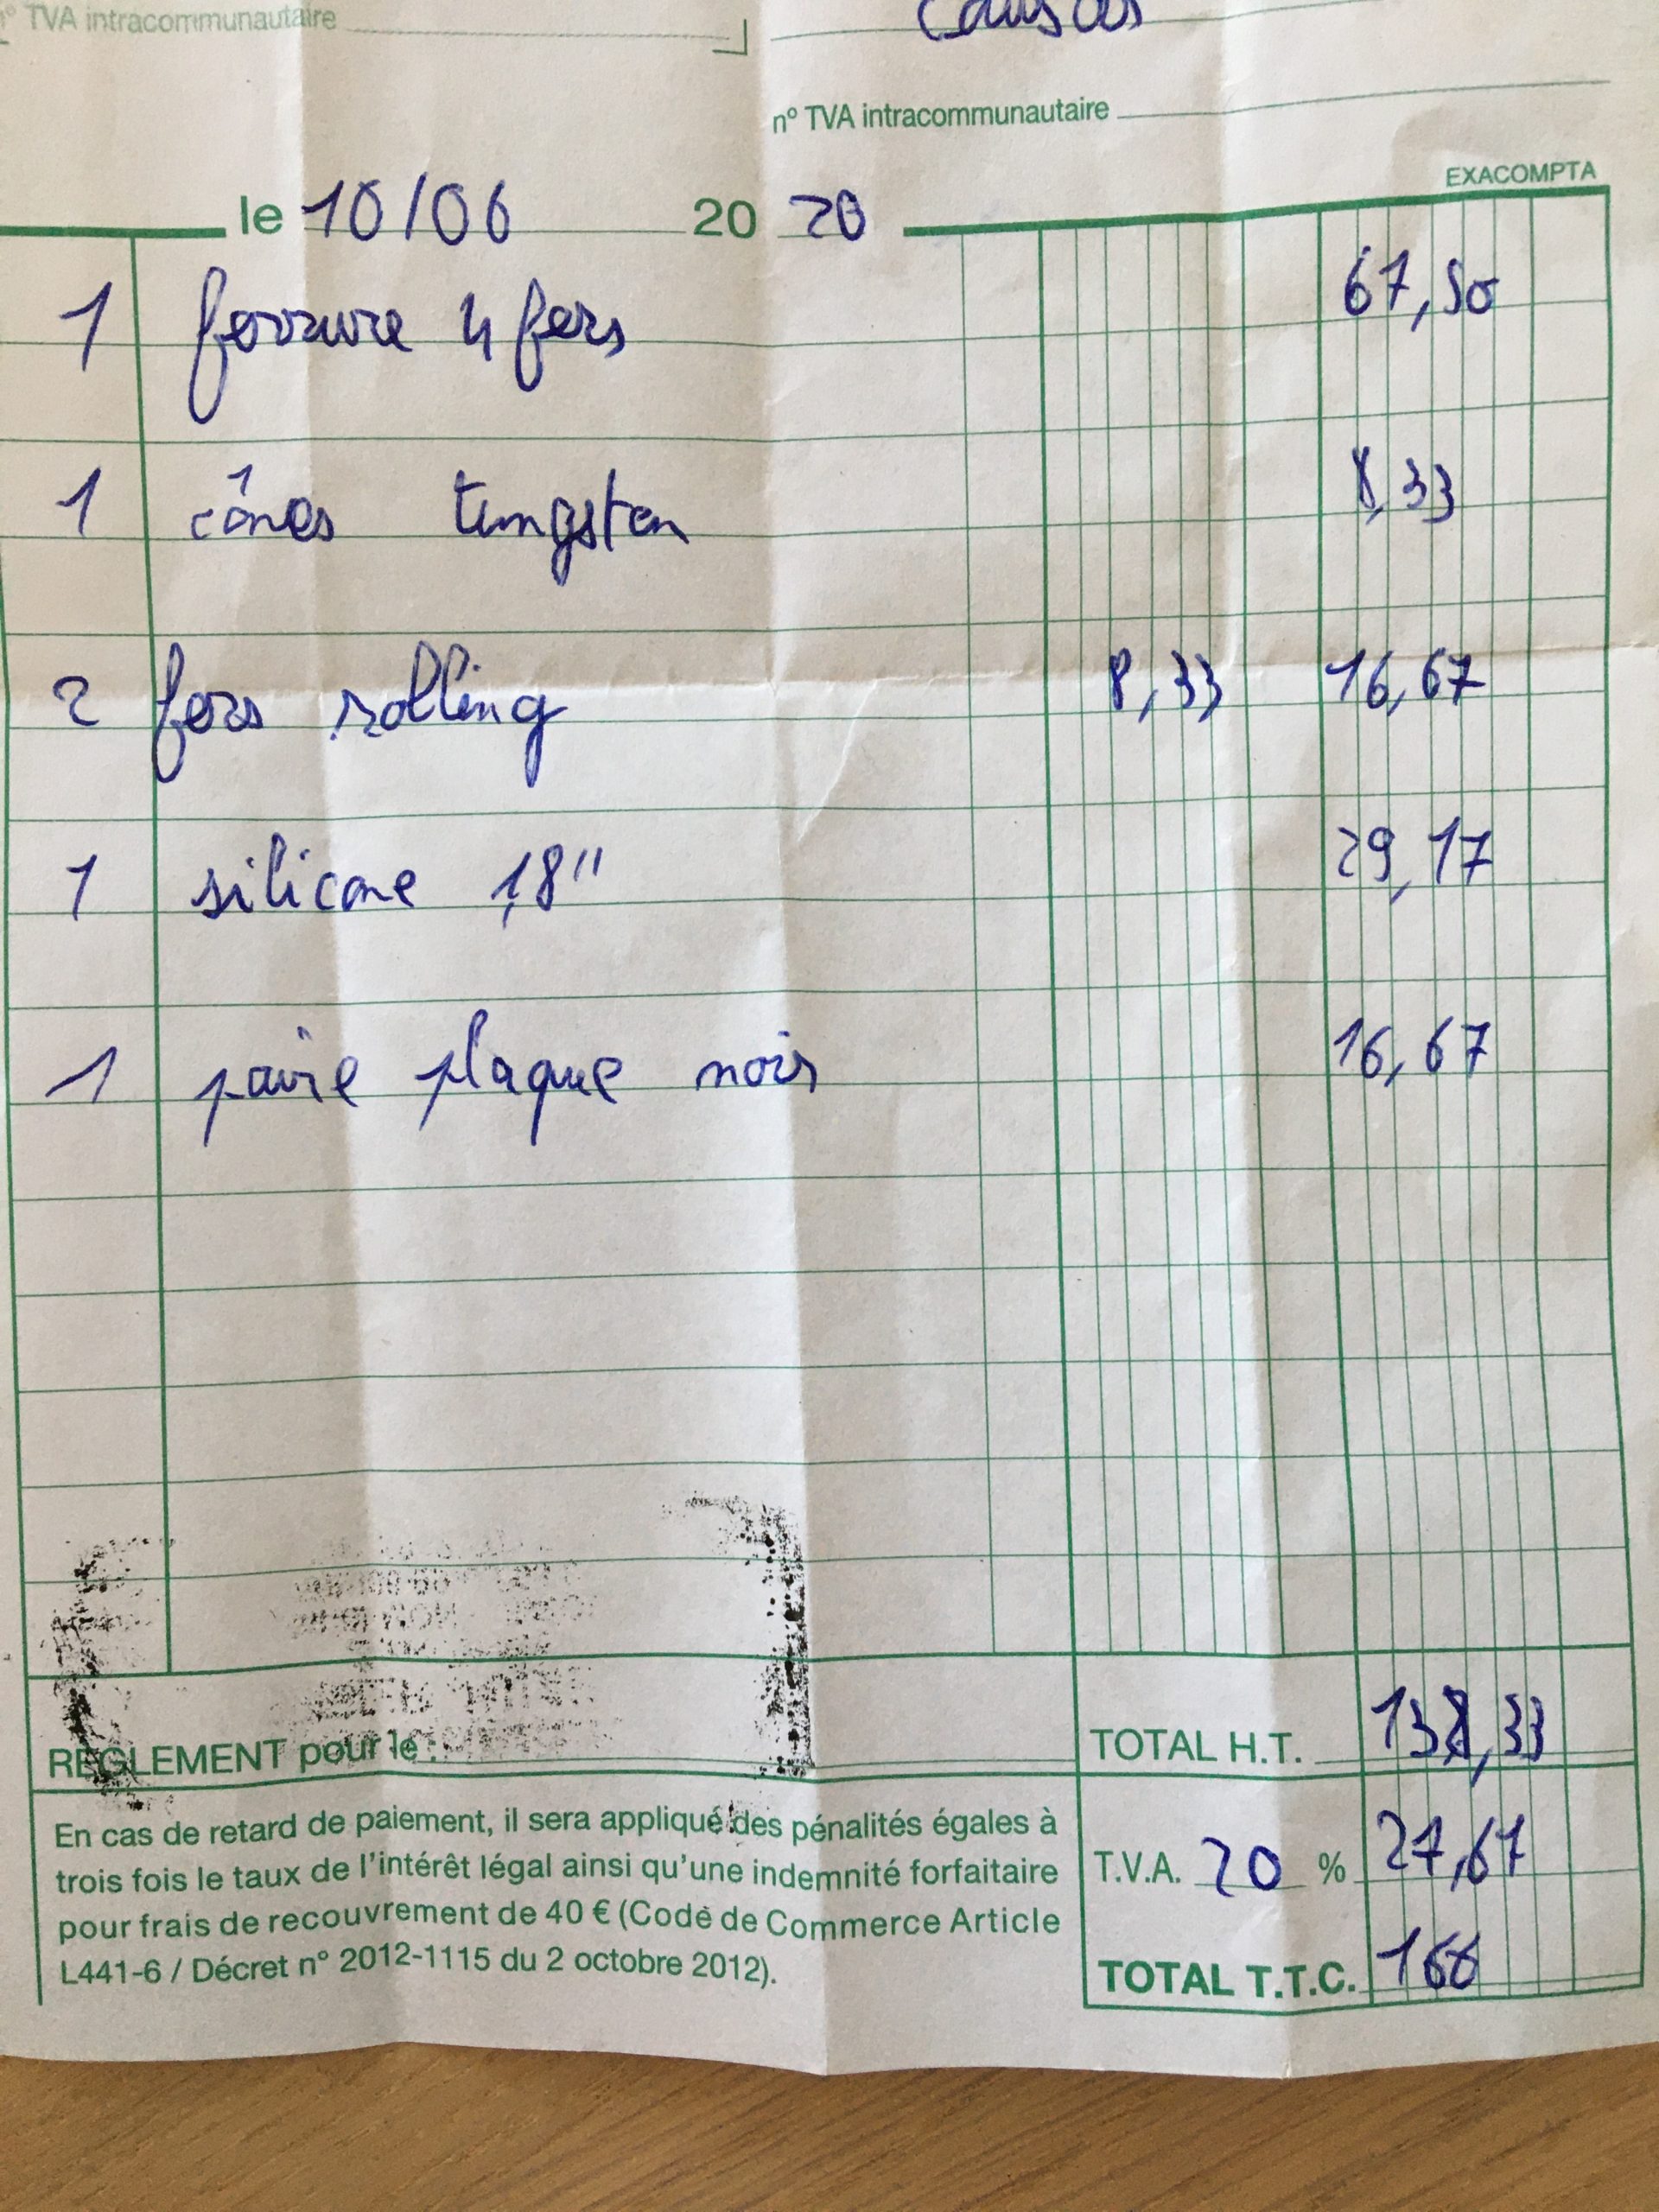 n° TVA intracommunautaire
n° TVA intracommunautaire
EXACOMPTA
le 10/06 20 20
1 ferrure 4 fers 67,50
1 cônes tungsten 8,33
2 fers rolling 8,33 16,67
1 silicone 1,8" 29,17
1 paire plaque noir 16,67
REGLEMENT pour le :
TOTAL H.T. 138,33
En cas de retard de paiement, il sera appliqué des pénalités égales à
trois fois le taux de l'intérêt légal ainsi qu'une indemnité forfaitaire
pour frais de recouvrement de 40 € (Code de Commerce Article
L441-6 / Décret n° 2012-1115 du 2 octobre 2012).
T.V.A. 20 % 27,67
TOTAL T.T.C. 166